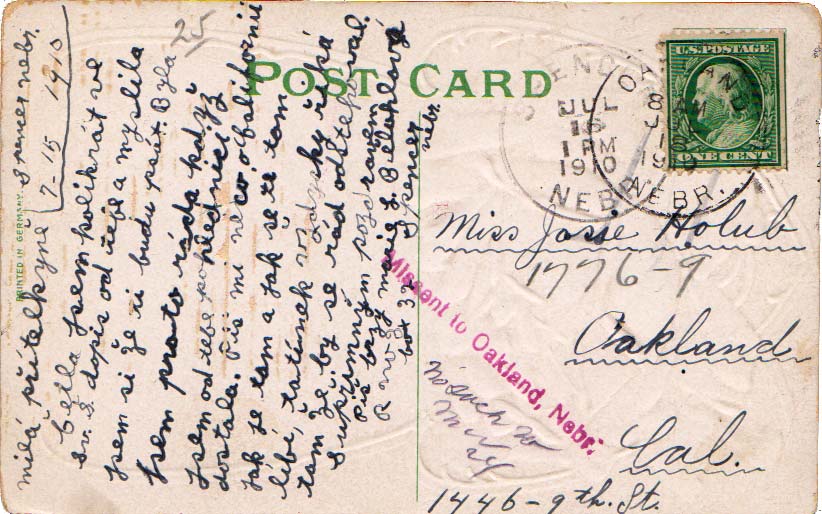 Spencer nebr.
7-15 1910
25
milá přítelkyně
četla jsem kolikrát ve
sv. d. dopis od tebe a myslila
jsem si že ti budu psát. Byla
jsem pro to ráda když
jsem od tebe pohlednici
dostala. Piš mi neco o Californii
jak je tam a jak se ti tam
líbí, tatínek vždycky říká
tam že by se rád odstehoval.
S upřímným pozdravem
Piš brzy marie L.
R no 2 Spencer
box 32 nebr.
PRINTED IN GERMANY.
POST CARD
U.S. POSTAGE
ONE CENT
SPENCER
JUL
15
1 PM
1910
NEBR.
OAKLAND
8 AM
1910
NEBR.
Miss Josie Holub
1776-9
Oakland
Cal.
1446-9th. St.
Missent to Oakland, Nebr.
No such no